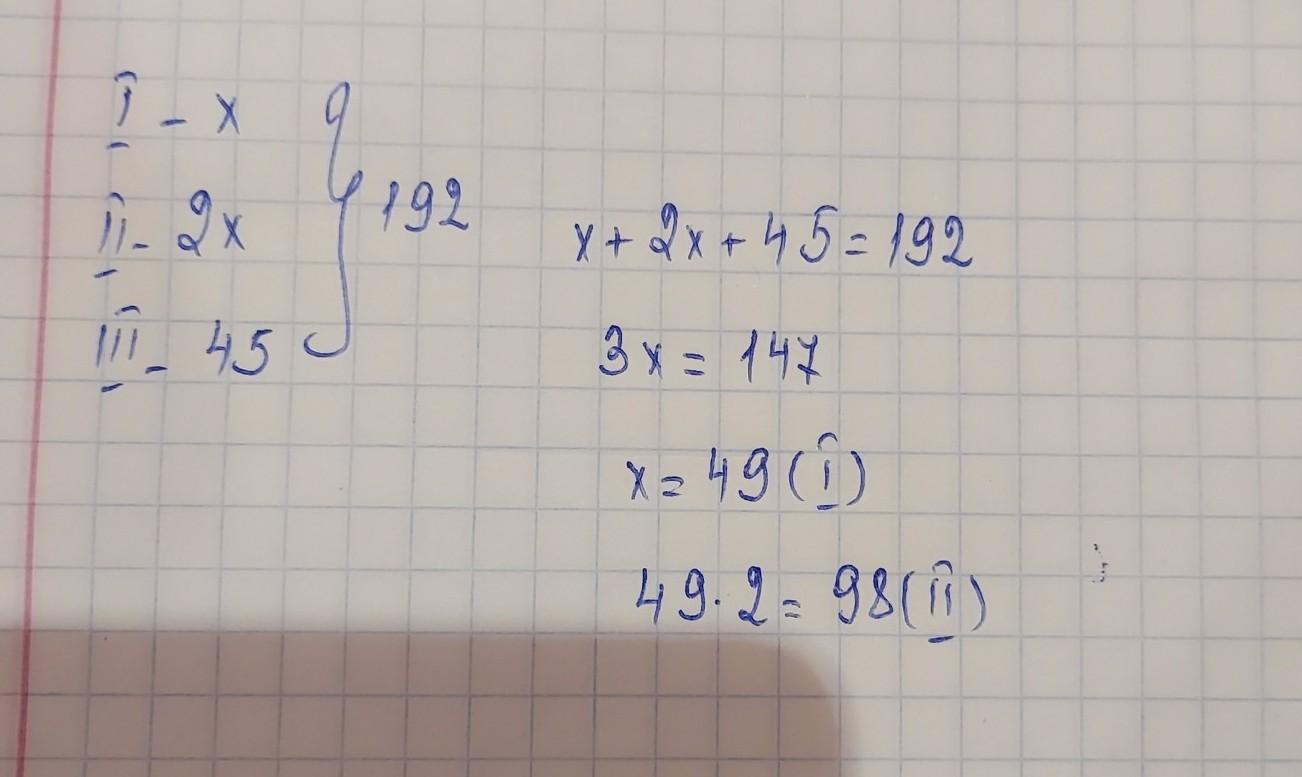 I - x
II - 2x
III - 45
192
x + 2x + 45 = 192
3x = 147
x = 49 (I)
49 · 2 = 98 (II)